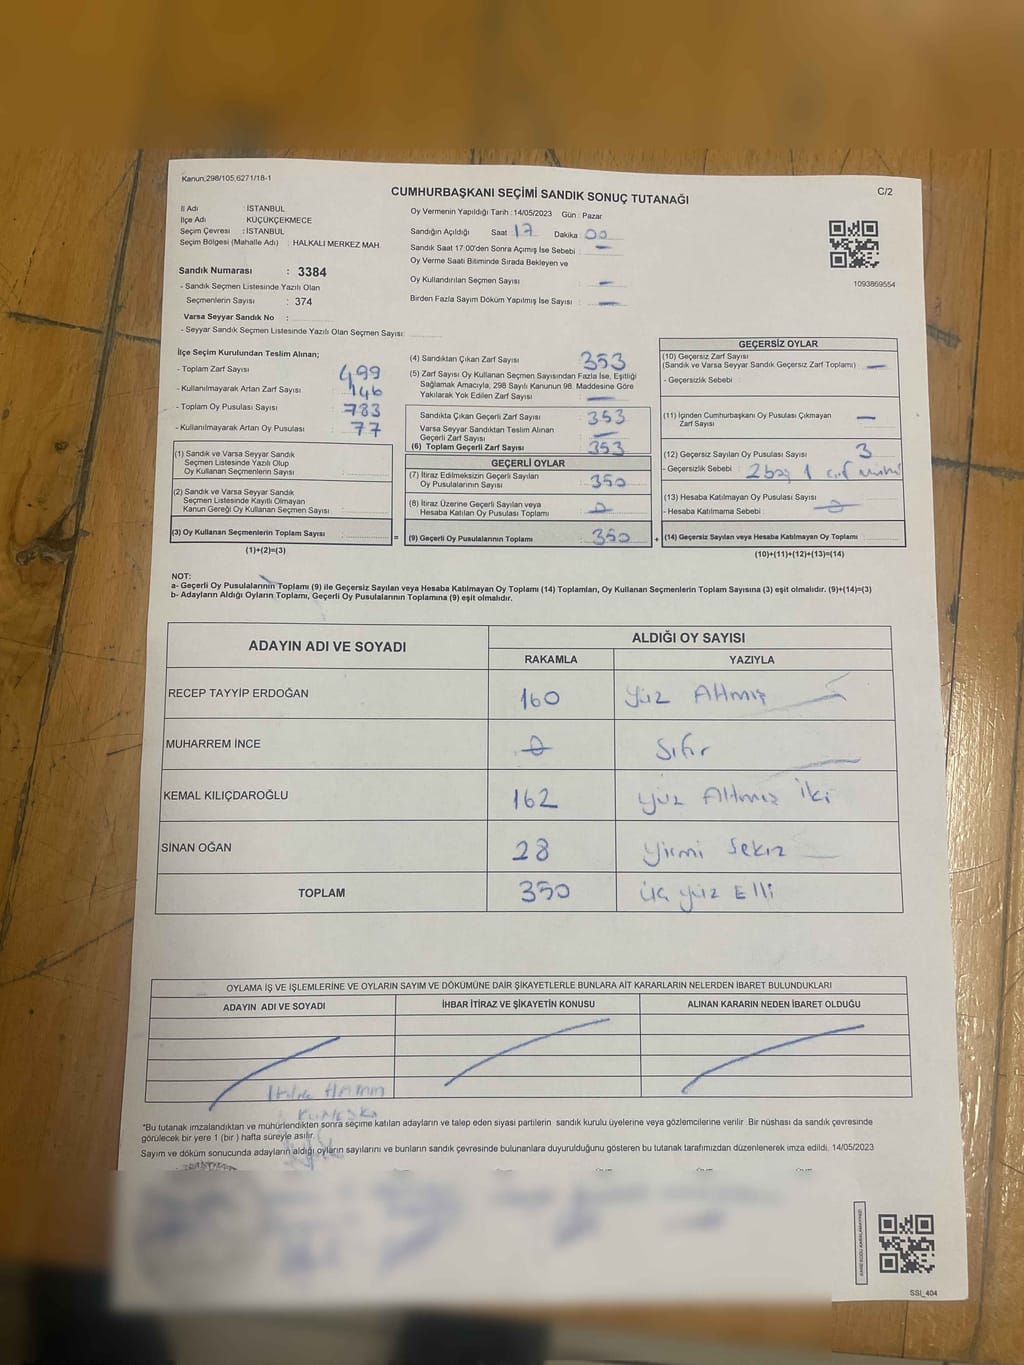 Kanun,298/105,6271/18-1
CUMHURBAŞKANI SEÇİMİ SANDIK SONUÇ TUTANAĞI
C/2
İl Adı : İSTANBUL
İlçe Adı : KÜÇÜKÇEKMECE
Seçim Çevresi : İSTANBUL
Seçim Bölgesi (Mahalle Adı) : HALKALI MERKEZ MAH.
Sandık Numarası : 3384
- Sandık Seçmen Listesinde Yazılı Olan
Seçmenlerin Sayısı : 374
Varsa Seyyar Sandık No :
- Seyyar Sandık Seçmen Listesinde Yazılı Olan Seçmen Sayısı:
Oy Vermenin Yapıldığı Tarih :14/05/2023 Gün : Pazar
Sandığın Açıldığı Saat 17 Dakika : 00
Sandık Saat 17.00'den Sonra Açımış İse Sebebi : —
Oy Verme Saati Bitiminde Sırada Bekleyen ve
Oy Kullandırılan Seçmen Sayısı : —
Birden Fazla Sayım Döküm Yapılmış İse Sayısı : —
1093869554
İlçe Seçim Kurulundan Teslim Alınan;
- Toplam Zarf Sayısı : 499
- Kullanılmayarak Artan Zarf Sayısı : 146
- Toplam Oy Pusulası Sayısı : 783
- Kullanılmayarak Artan Oy Pusulası : 77
(1) Sandık ve Varsa Seyyar Sandık
Seçmen Listesinde Yazılı Olup
Oy Kullanan Seçmenlerin Sayısı :
(2) Sandık ve Varsa Seyyar Sandık
Seçmen Listesinde Kayıtlı Olmayan
Kanun Gereği Oy Kullanan Seçmen Sayısı :
(3) Oy Kullanan Seçmenlerin Toplam Sayısı :
(1)+(2)=(3)
(4) Sandıktan Çıkan Zarf Sayısı : 353
(5) Zarf Sayısı Oy Kullanan Seçmen Sayısından Fazla İse, Eşitliği
Sağlamak Amacıyla, 298 Sayılı Kanunun 98. Maddesine Göre
Yakılarak Yok Edilen Zarf Sayısı : —
Sandıkta Çıkan Geçerli Zarf Sayısı : 353
Varsa Seyyar Sandıktan Teslim Alınan
Geçerli Zarf Sayısı : —
(6) Toplam Geçerli Zarf Sayısı : 353
GEÇERLİ OYLAR
(7) İtiraz Edilmeksizin Geçerli Sayılan
Oy Pusulalarının Sayısı : 350
(8) İtiraz Üzerine Geçerli Sayılan veya
Hesaba Katılan Oy Pusulası Toplamı : 0
= (9) Geçerli Oy Pusulalarının Toplamı : 350 +
GEÇERSİZ OYLAR
(10) Geçersiz Zarf Sayısı
(Sandık ve Varsa Seyyar Sandık Geçersiz Zarf Toplamı) : —
- Geçersizlik Sebebi :
(11) İçinden Cumhurbaşkanı Oy Pusulası Çıkmayan
Zarf Sayısı : —
(12) Geçersiz Sayılan Oy Pusulası Sayısı : 3
- Geçersizlik Sebebi : 2 boş 1
(13) Hesaba Katılmayan Oy Pusulası Sayısı : 0
- Hesaba Katılmama Sebebi :
(14) Geçersiz Sayılan veya Hesaba Katılmayan Oy Toplamı :
(10)+(11)+(12)+(13)=(14)
NOT:
a- Geçerli Oy Pusulalarının Toplamı (9) ile Geçersiz Sayılan veya Hesaba Katılmayan Oy Toplamı (14) Toplamları, Oy Kullanan Seçmenlerin Toplam Sayısına (3) eşit olmalıdır. (9)+(14)=(3)
b- Adayların Aldığı Oyların Toplamı, Geçerli Oy Pusulalarının Toplamına (9) eşit olmalıdır.
ADAYIN ADI VE SOYADI ALDIĞI OY SAYISI
RAKAMLA YAZIYLA
RECEP TAYYİP ERDOĞAN 160 Yüz Altmış
MUHARREM İNCE 0 Sıfır
KEMAL KILIÇDAROĞLU 162 Yüz Altmış iki
SİNAN OĞAN 28 Yirmi Sekiz
TOPLAM 350 Üç yüz Elli
OYLAMA İŞ VE İŞLEMLERİNE VE OYLARIN SAYIM VE DÖKÜMÜNE DAİR ŞİKAYETLERLE BUNLARA AİT KARARLARIN NELERDEN İBARET BULUNDUKLARI
ADAYIN ADI VE SOYADI İHBAR İTİRAZ VE ŞİKAYETİN KONUSU ALINAN KARARIN NEDEN İBARET OLDUĞU
*Bu tutanak imzalandıktan ve mühürlendikten sonra seçime katılan adayların ve talep eden siyasi partilerin sandık kurulu üyelerine veya gözlemcilerine verilir .Bir nüshası da sandık çevresinde
görülecek bir yere 1 (bir ) hafta süreyle asılır.
Sayım ve döküm sonucunda adayların aldığı oyların sayılarını ve bunların sandık çevresinde bulunanlara duyurulduğunu gösteren bu tutanak tarafımızdan düzenlenerek imza edildi. 14/05/2023
SSİ_404